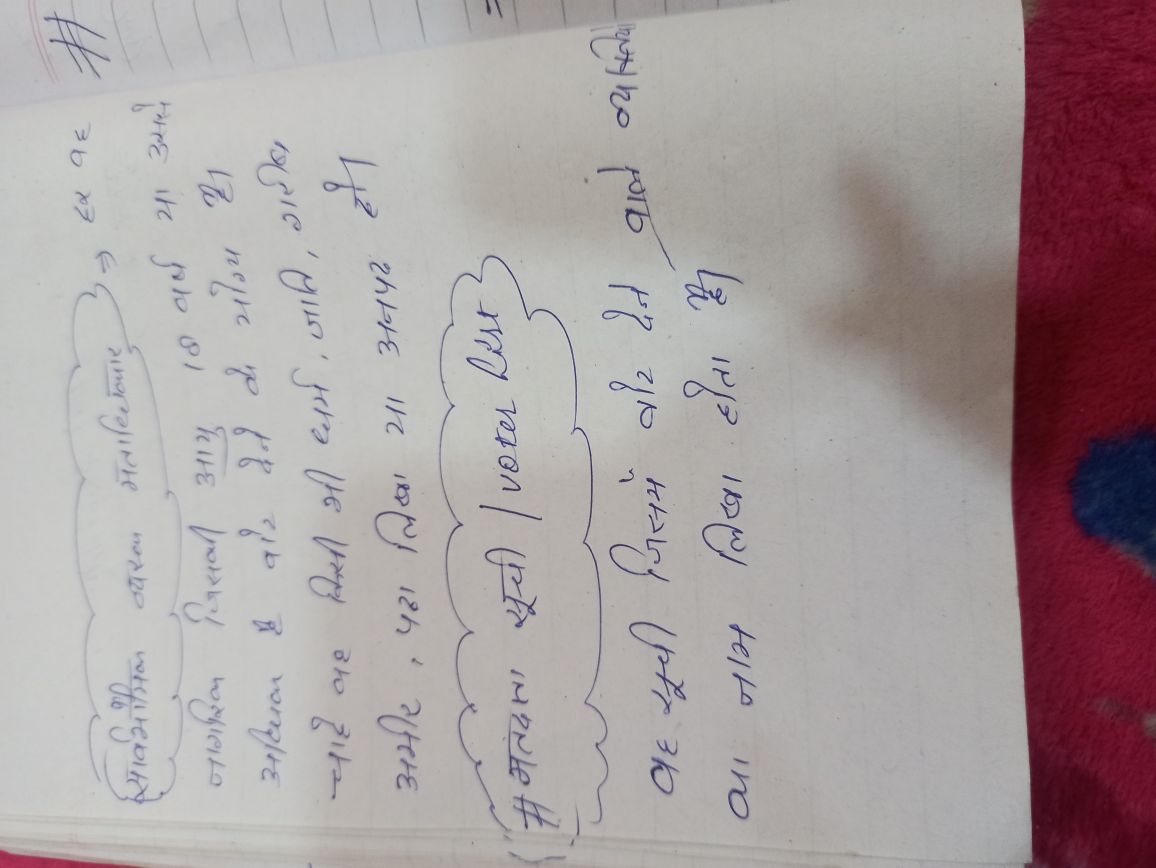 #
सार्वभौमिक वयस्क मताधिकार ⇒ हर वह
नागरिक जिसकी आयु 18 वर्ष या उससे
अधिक है वोट देने के योग्य है।
चाहे वह किसी भी धर्म, जाति, गरीब
अमीर, पढ़ा लिखा या अनपढ़ हो।
# मतदाता सूची / voter list
वह सूची जिसमें वोट देने वाले व्यक्तियों
का नाम लिखा होता है।